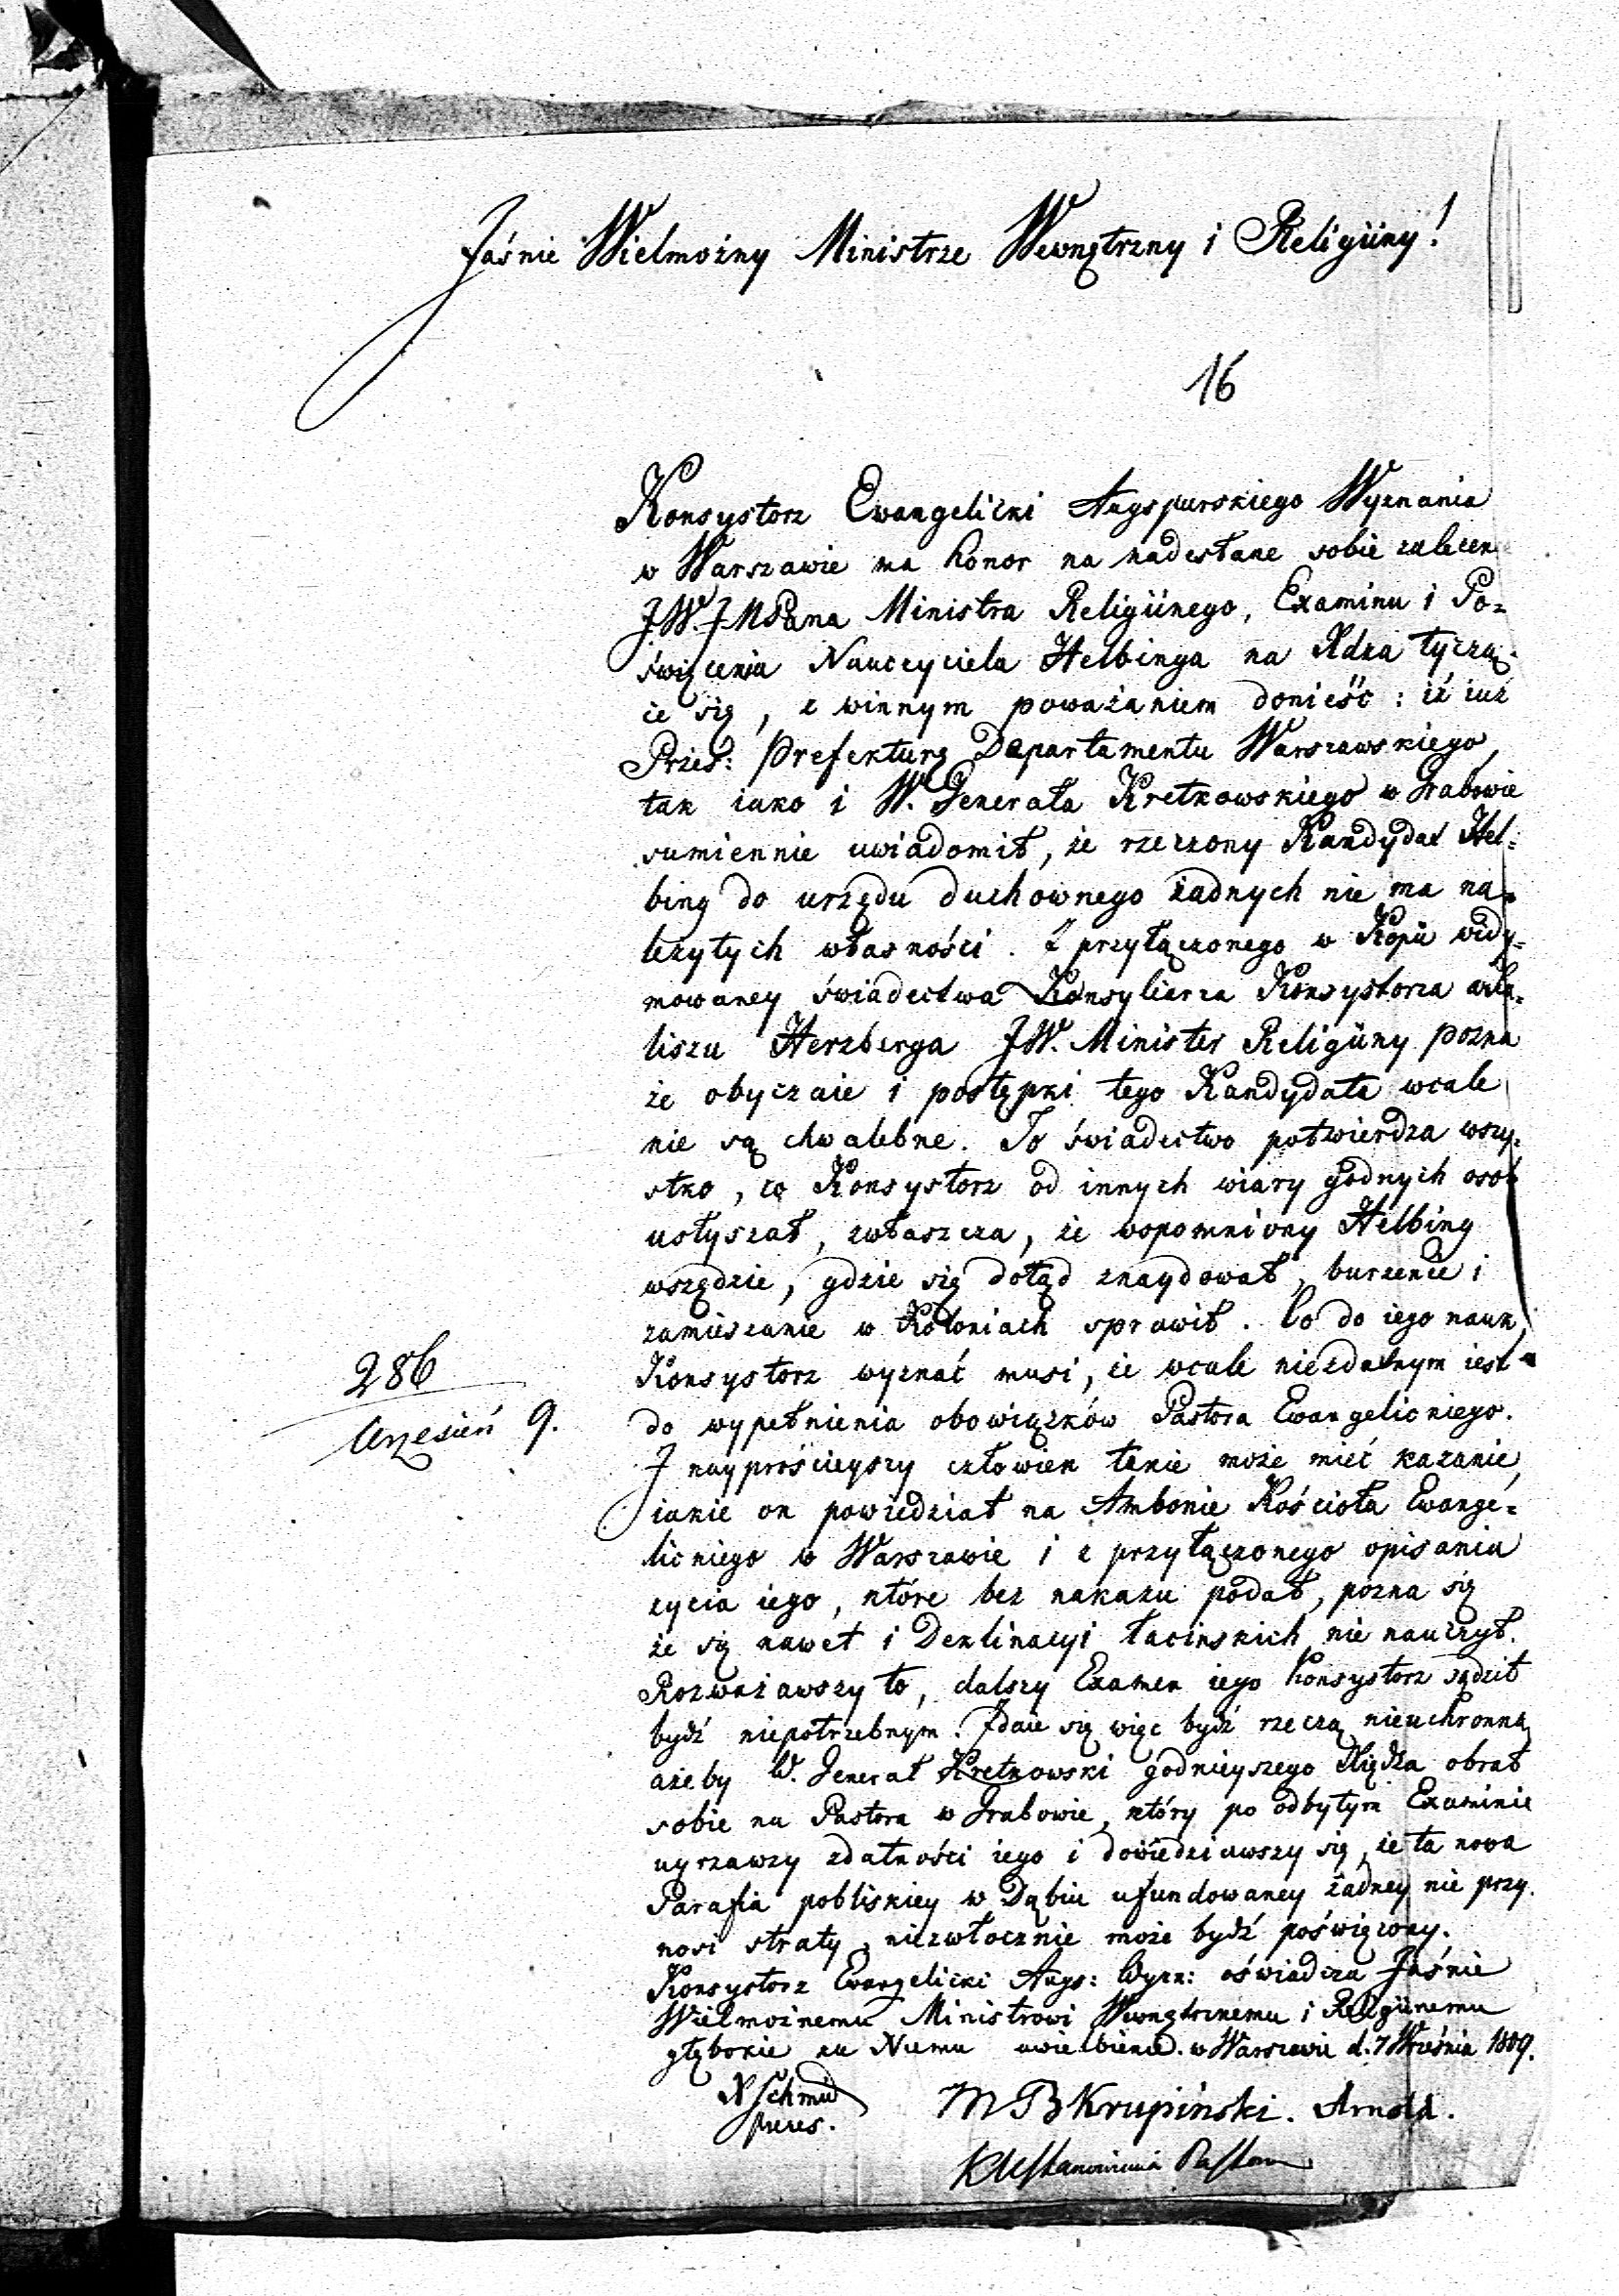 Jaśnie Wielmożny Ministrze Wewnętrzny i Religiiny!
16
Konsystorz Ewangelicki Augspurskiego Wyznania
w Warszawie ma honor na nadesłane sobie zalecen
JW. JMPana Ministra Religiinego, Examinu i Po=
święcenia Nauczyciela Helbinga na Xdza tyczą=
ce się, z winnym poważaniem donieść: iż iuż
Prześ: Prefekturę Departamentu Warszawskiego,
tak iako i W. Generała Kretkowskiego w Grabowie
sumiennie uwiadomił, że rzeczony Kandydat Hel=
bing do urzędu duchownego żadnych nie ma na=
leżytych własności. Z przyłączonego w Kopii widy=
mowaney świadectwa Konsyliarza Konsystorza w Ka=
liszu Herzberga JW. Minister Religiiny pozna
że obyczaie i postępki tego Kandydata wcale
nie są chwalebne. To świadectwo potwierdza wszy=
stko, co Konsystorz od innych wiary godnych osob
usłyszał, zwłaszcza, że wspomniony Helbing
wszędzie, gdzie się dotąd znaydował, burzenie i
zamieszanie w Koloniach sprawił. Co do iego nauk,
Konsystorz wyznać musi, że wcale niezdatnym iest
do wypełnienia obowiązków Pastora Ewangelickiego.
I nayprościeyszy człowiek takie może mieć kazanie,
iakie on powiedział na Ambonie Kościoła Ewange=
lickiego w Warszawie i z przyłączonego opisania
życia iego, które bez nakazu podał, pozna się
że się nawet i Deklinacyi łacinskich nie nauczył.
Rozważawszy to, dalszy Examen iego Konsystorz sądził
bydź niepotrzebnym. Zdaie się więc bydź rzeczą nieuchronną
ażeby W. Generał Kretkowski godnieyszego Xiędza obrał
sobie na Pastora w Grabowie, który po odbytym Examinie
uyrzawzy zdatności iego i dowiedziawszy się, że ta nowa
Parafia pobliskiey w Dąbiu ufundowaney żadney nie przy=
nosi straty, niezwłocznie może bydź poświęcony.
Konsystorz Ewangelicki Augs: Wyzn: oświadcza Jaśnie
Wielmożnemu Ministrowi Wewnętrznemu i Religiinemu
głębokie ku Niemu uwielbienie. w Warszawie d. 7 Wrzesnia 1809.
286
Wrzesień 9.
Schmid
prezes.
M B Krupiński. Arnold.
Pastor